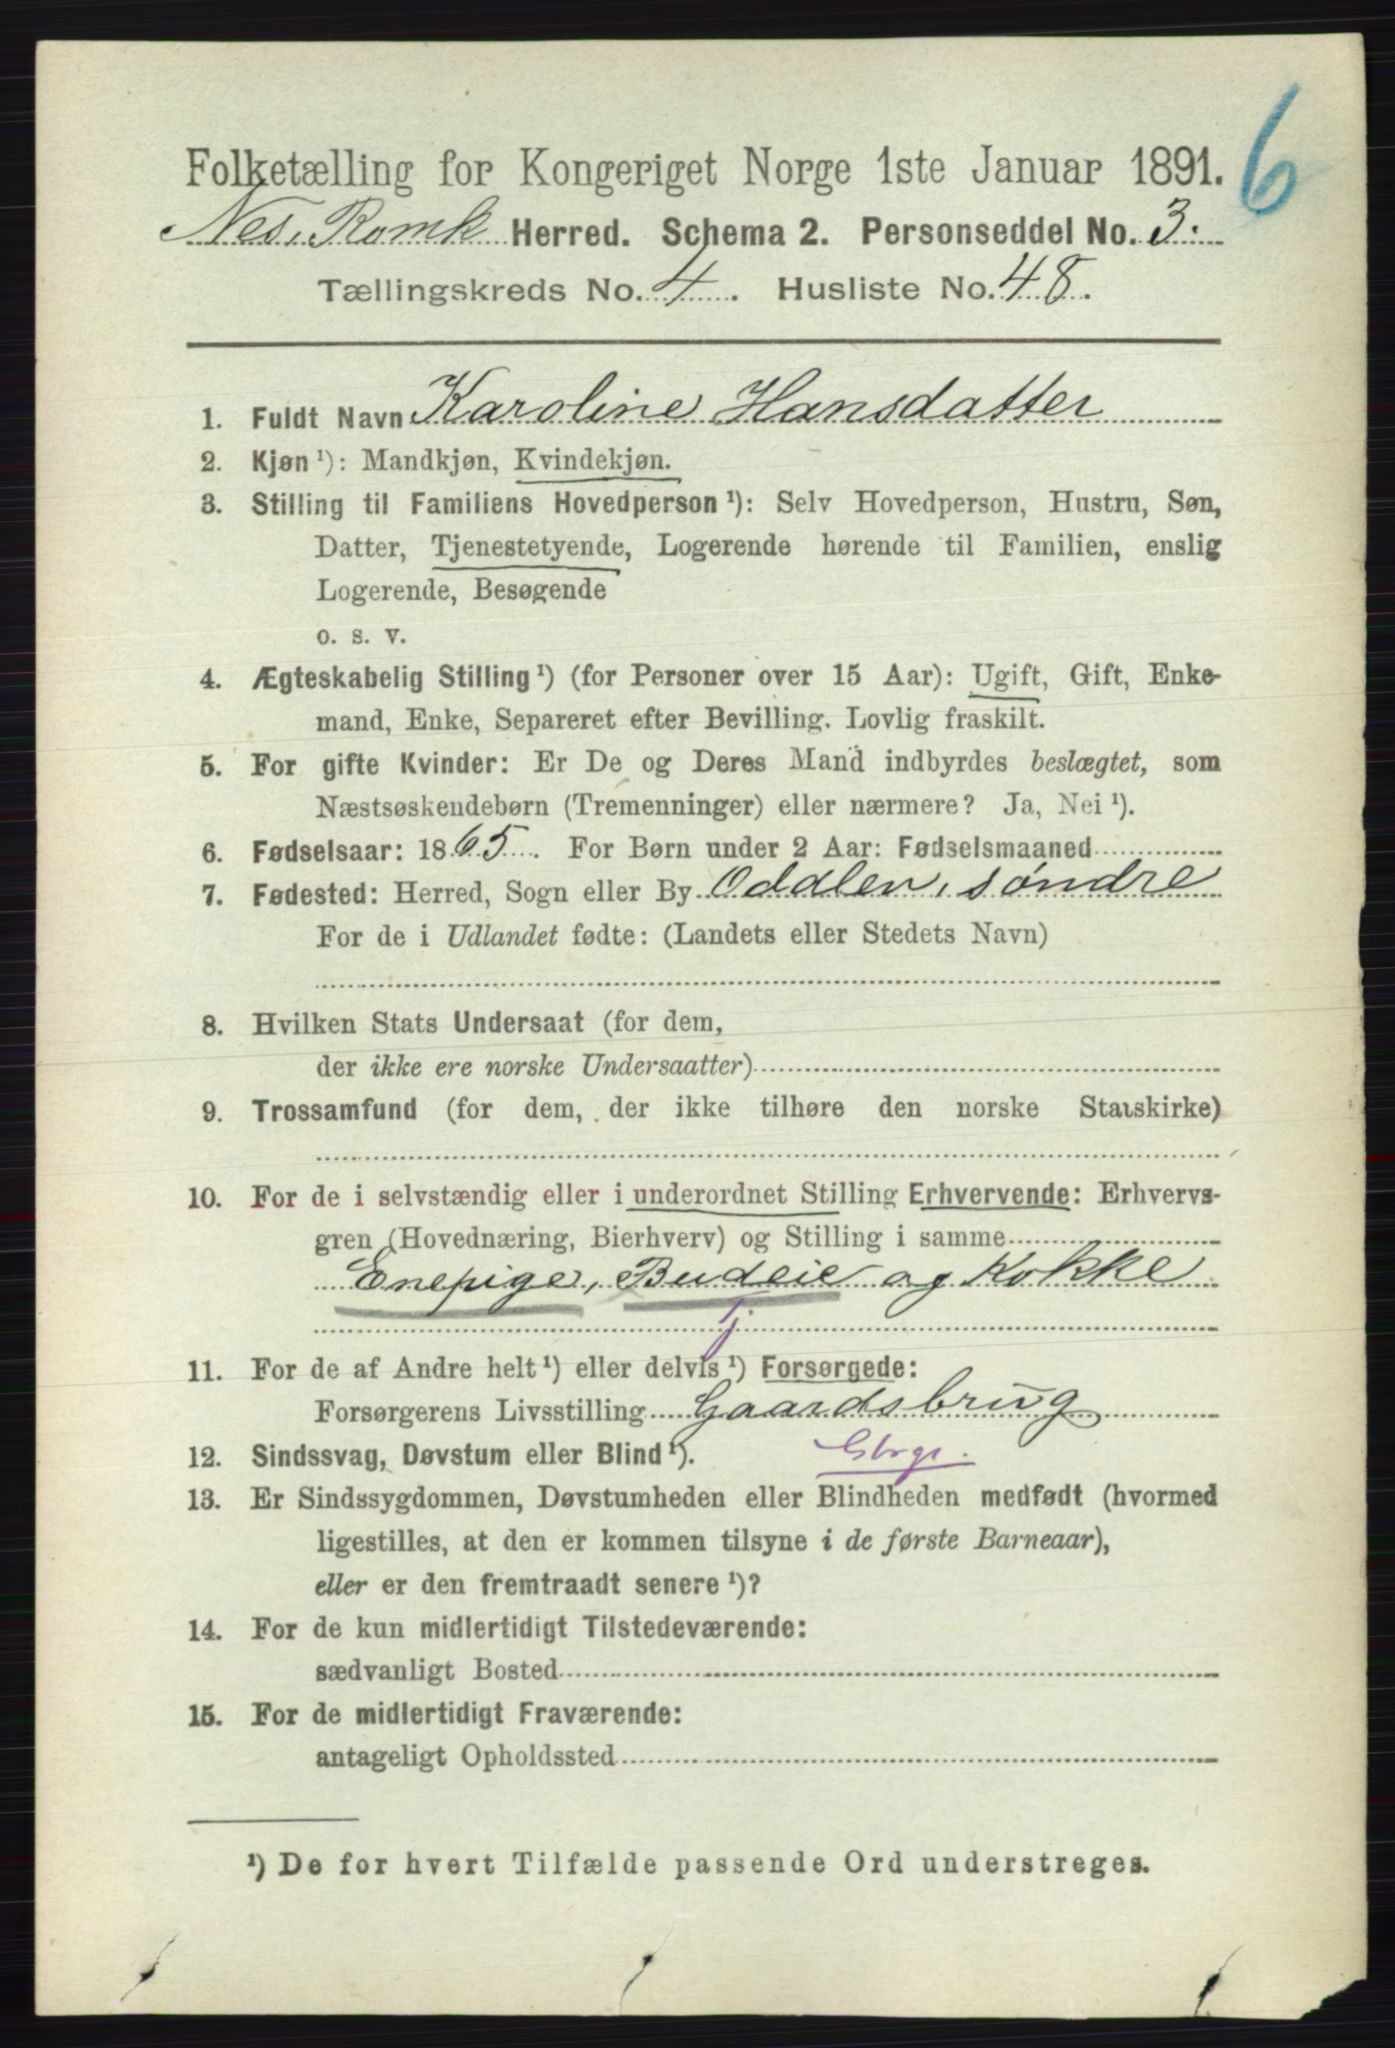 6
Folketælling for Kongeriget Norge 1ste Januar 1891.
Nes, Romk Herred. Schema 2. Personseddel No. 3.
Tællingskreds No. 4. Husliste No. 48.
1. Fuldt Navn Karoline Hansdatter
2. Kjøn ¹): Mandkjøn, Kvindekjøn.
3. Stilling til Familiens Hovedperson ¹): Selv Hovedperson, Hustru, Søn,
Datter, Tjenestetyende, Logerende hørende til Familien, enslig
Logerende, Besøgende
o. s. v.
4. Ægteskabelig Stilling ¹) (for Personer over 15 Aar): Ugift, Gift, Enke-
mand, Enke, Separeret efter Bevilling. Lovlig fraskilt.
5. For gifte Kvinder: Er De og Deres Mand indbyrdes beslægtet, som
Næstsøskendebørn (Tremenninger) eller nærmere? Ja, Nei ¹).
6. Fødselsaar: 1865. For Børn under 2 Aar: Fødselsmaaned
7. Fødested: Herred, Sogn eller By Oddlen, søndre
For de i Udlandet fødte: (Landets eller Stedets Navn)
8. Hvilken Stats Undersaat (for dem,
der ikke ere norske Undersaatter)
9. Trossamfund (for dem, der ikke tilhøre den norske Statskirke)
10. For de i selvstændig eller i underordnet Stilling Erhvervende: Erhvervs-
gren (Hovednæring, Bierhverv) og Stilling i samme
Enepige, Budeie og Kokke
Tj
11. For de af Andre helt ¹) eller delvis ¹) Forsørgede:
Forsørgerens Livsstilling Gaardsbrug
12. Sindssvag, Døvstum eller Blind ¹).
13. Er Sindssygdommen, Døvstumheden eller Blindheden medfødt (hvormed
ligestilles, at den er kommen tilsyne i de første Barneaar),
eller er den fremtraadt senere ¹)?
14. For de kun midlertidigt Tilstedeværende:
sædvanligt Bosted
15. For de midlertidigt Fraværende:
antageligt Opholdssted
¹) De for hvert Tilfælde passende Ord understreges.